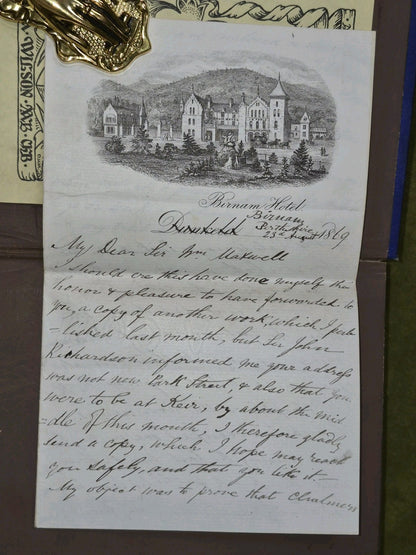 Birnam Hotel
Dunkeld
Birnam
Perthshire
23d August 1869
My Dear Sir Wm Maxwell
I should ere this have done myself the
honor & pleasure to have forwarded to
you, a copy of another work, which I pub
=lished last month, but Sir John
Richardson informed me your address
was not new Park Street, & also that you
were to be at Keir, by about the mid
=dle of this month, I therefore gladly
send a copy, which I hope may reach
you safely, and that you like it.—
My object was to prove that Chalmers